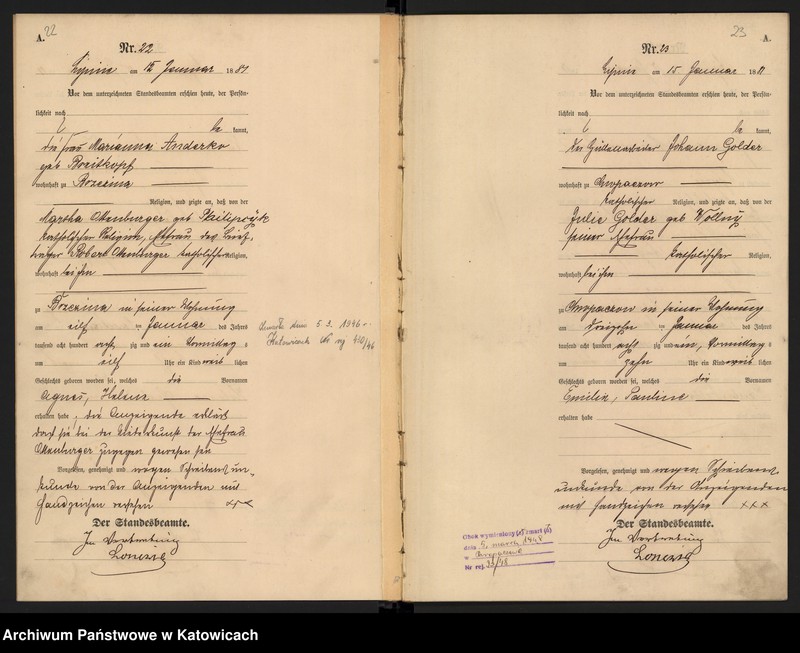 22
A.
Nr. 22
Lipine am 12 Januar 1881
Vor dem unterzeichneten Standesbeamten erschien heute, der Persön-
lichkeit nach
be kannt,
die Frau Marianna Anderko
geb
wohnhaft zu Brzezina
Religion, und zeigte an, daß von der
geb
katholischer Religion, Ehefrau des
Robert katholischer Religion,
wohnhaft bei ihm
zu Brzezina in seiner Wohnung
am eilf ten Januar des Jahres
tausend acht hundert acht zig und ein Vormittag s
um eilf Uhr ein Kind weib lichen
Geschlechts geboren worden sei, welches die Vornamen
Agnes, Helene
erhalten habe; die Anzeigende erklärt
daß sie bei der Niederkunft der Ehefrau
zugegen gewesen sei
Vorgelesen, genehmigt und wegen Schreibens un-
kunde von der Anzeigenden mit
Handzeichen versehen xxx
Der Standesbeamte.
In Vertretung
dnia 5.3. 1946 r.
Katowicach 410/46
23
A.
Nr. 23
Lipine am 15. Januar 1881
Vor dem unterzeichneten Standesbeamten erschien heute, der Persön-
lichkeit nach
be kannt,
der Hüttenarbeiter Johann Golder
wohnhaft zu Chropaczow
katholischer Religion, und zeigte an, daß von der
Julie Golder geb Wollny
seiner Ehefrau
katholischer Religion,
wohnhaft bei ihm
zu Chropaczow in seiner Wohnung
am dreizehn ten Januar des Jahres
tausend acht hundert acht zig und ein, Vormittag s
um zehn Uhr ein Kind weib lichen
Geschlechts geboren worden sei, welches die Vornamen
Emilie, Pauline
erhalten habe
Vorgelesen, genehmigt und wegen Schreibens
unkunde von der Anzeigenden
mit Handzeichen versehen xxx
Der Standesbeamte.
In Vertretung
Obok wymieniony (a) zmarł (a)
dnia 5. marca 1948
w Chropaczowie
Nr rej. 33/48
Archiwum Państwowe w Katowicach